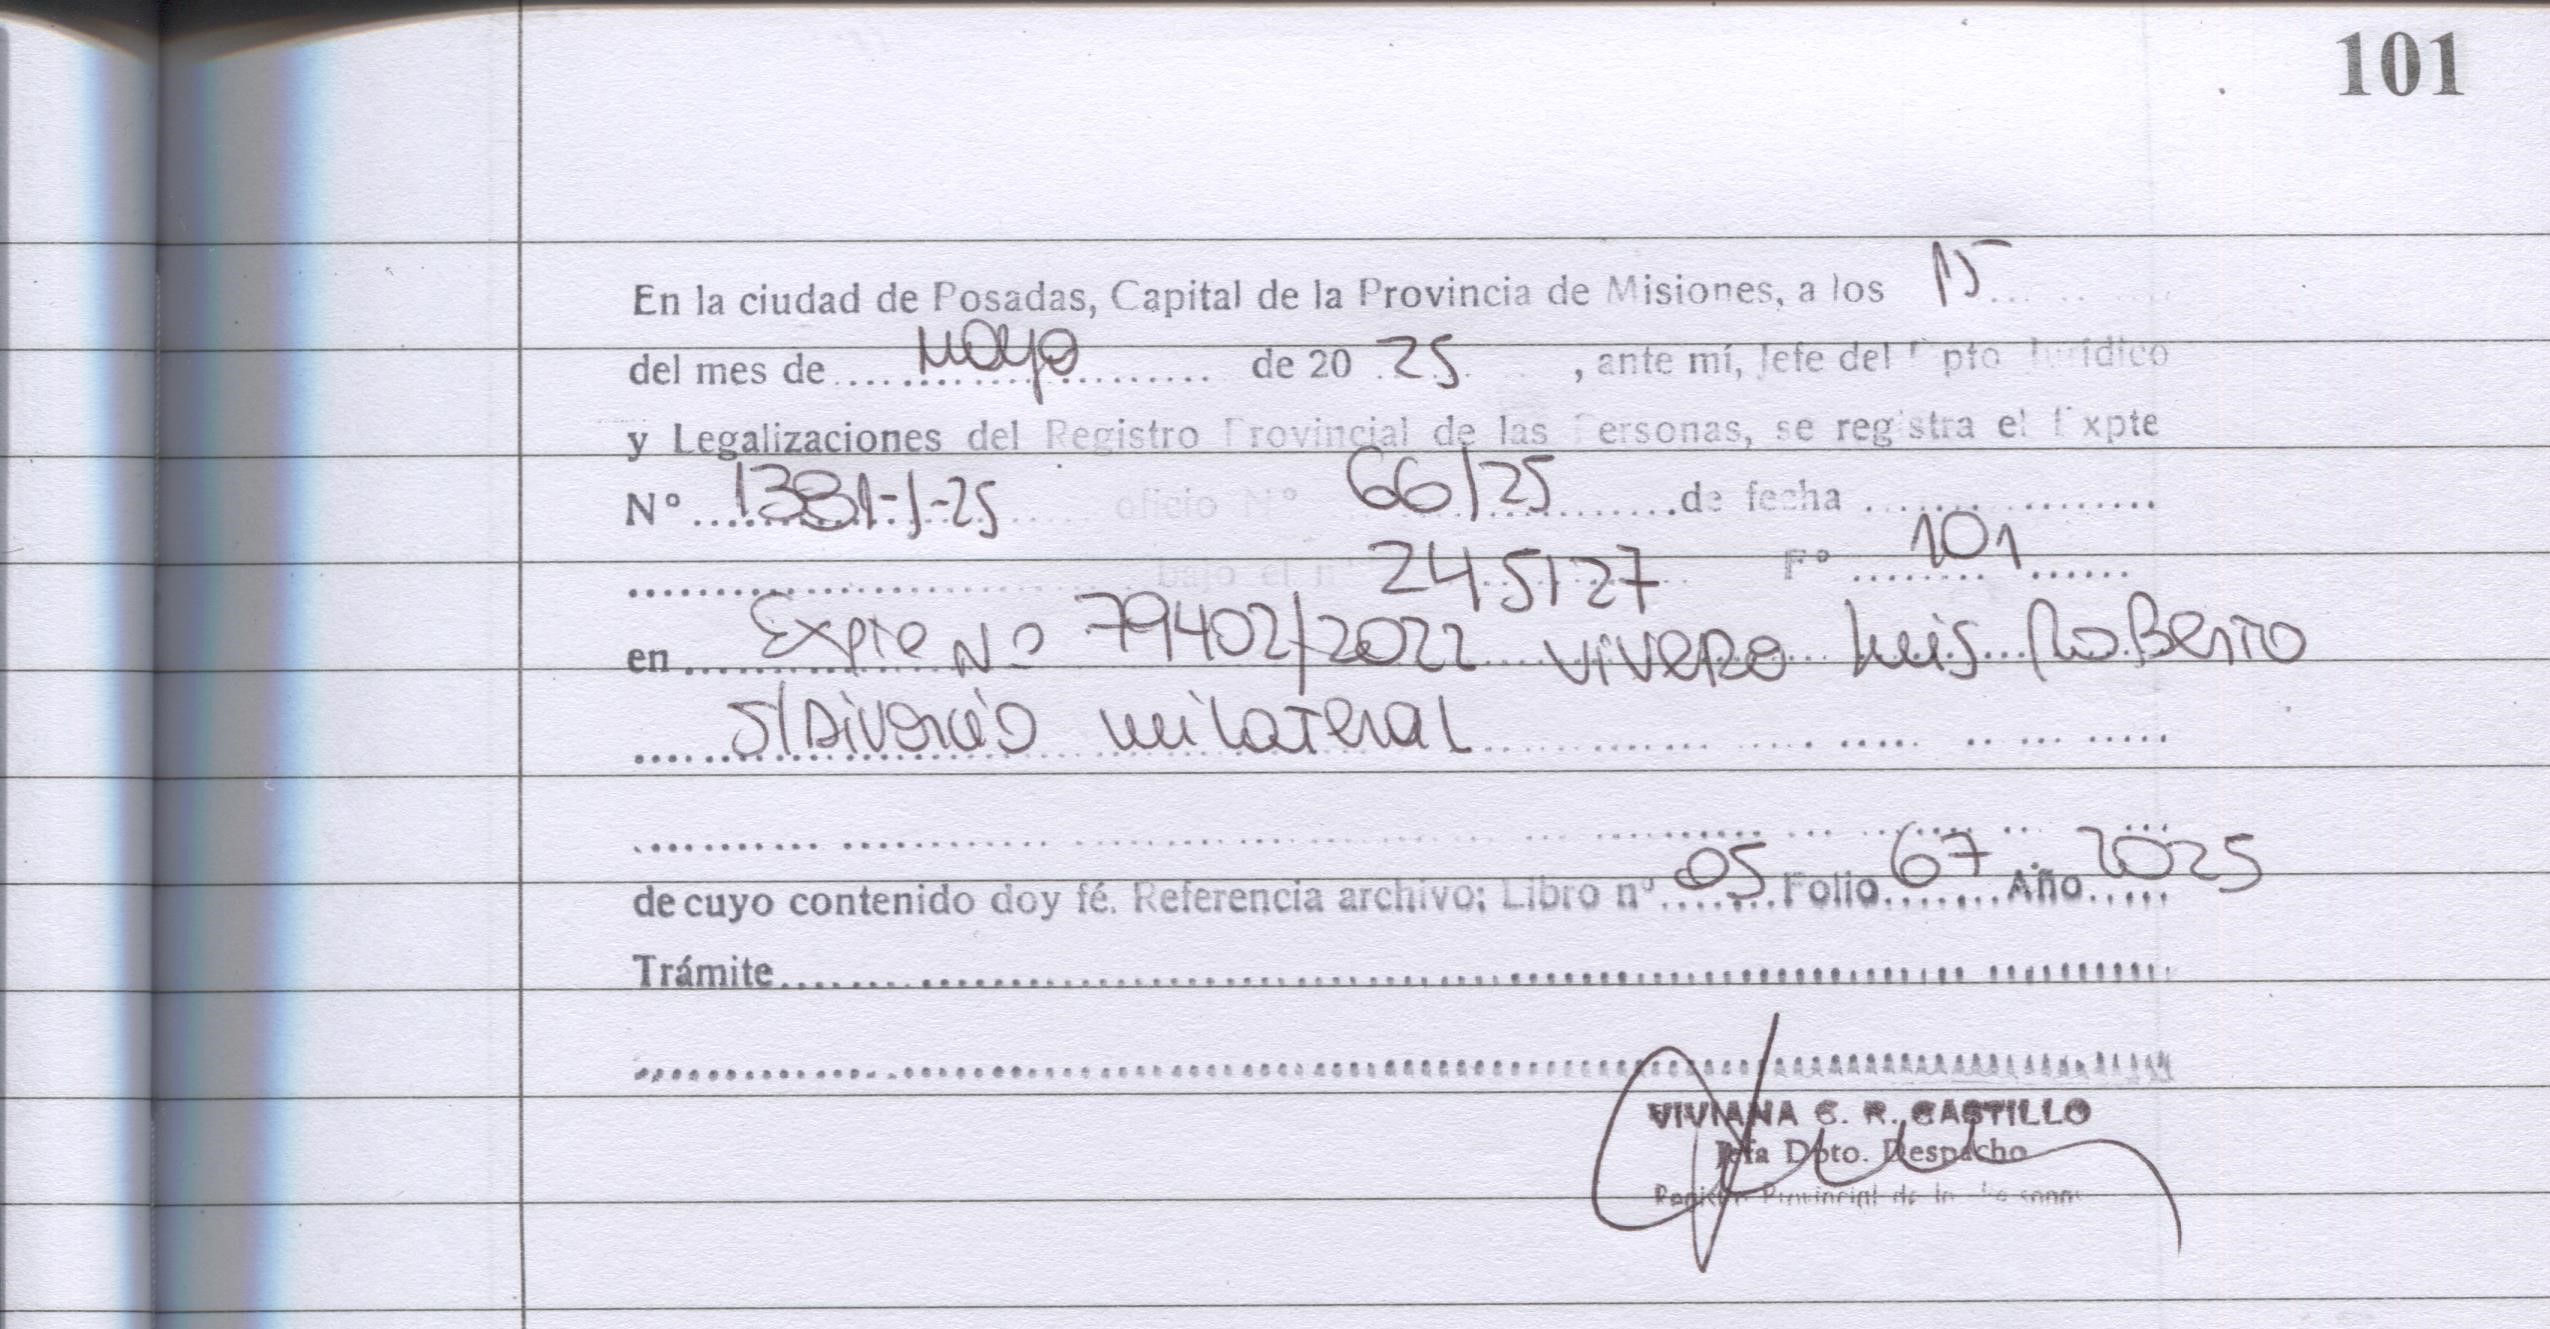 101
En la ciudad de Posadas, Capital de la Provincia de Misiones, a los 15
del mes de mayo de 20 25, ante mí, Jefe del Dpto Jurídico
y Legalizaciones del Registro Provincial de las Personas, se registra el Expte
Nº 1381-J-25 oficio Nº 66/25 de fecha
bajo el nº 245127 Fº 101
en Expte Nº 79402/2022 Vivero Luis Roberto
s/Divorcio unilateral
de cuyo contenido doy fé. Referencia archivo: Libro nº 05 Folio 67 Año 2025
Trámite
VIVIANA C. R. CASTILLO
Jefa Dpto. Despacho
Registro Provincial de las Personas